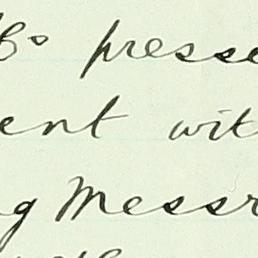 Co presse
ent wit
g Messr